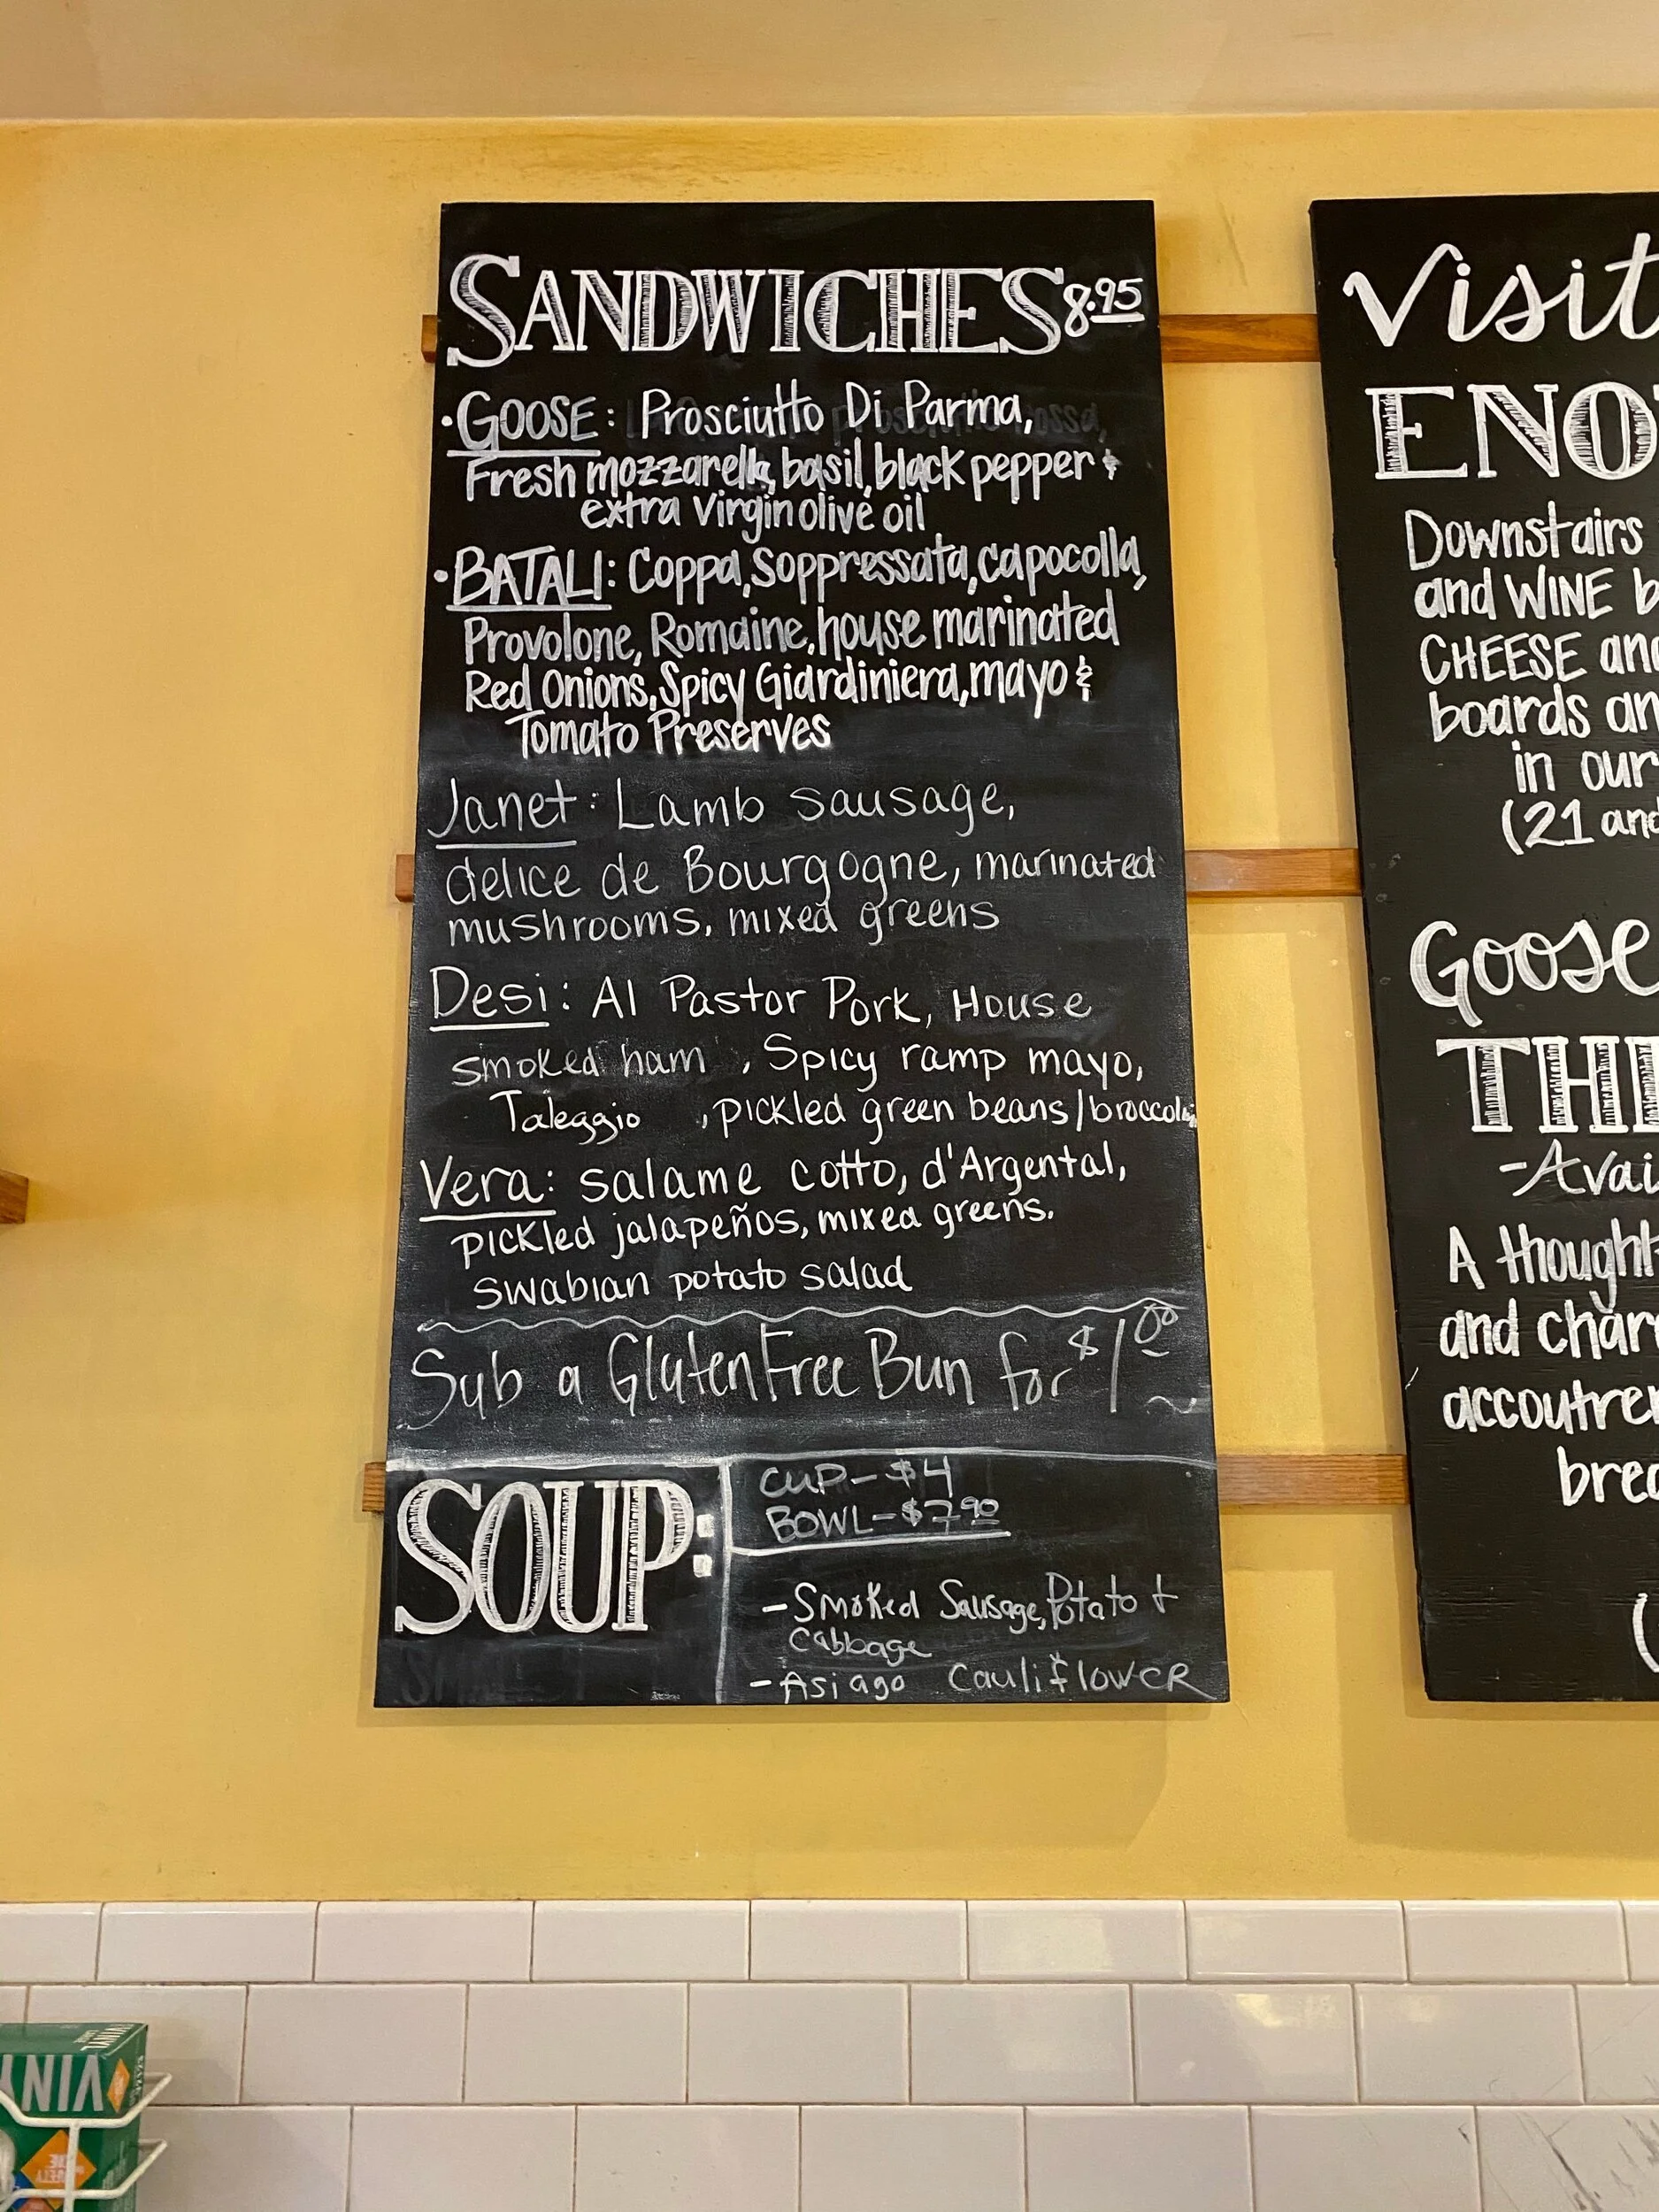 SANDWICHES 8.95
·GOOSE: Prosciutto Di Parma,
Fresh mozzarella, basil, black pepper &
extra virgin olive oil
·BATALI: Coppa, Soppressata, capocolla,
Provolone, Romaine, house marinated
Red Onions, Spicy Giardiniera, mayo &
Tomato Preserves
Janet: Lamb sausage,
delice de Bourgogne, marinated
mushrooms, mixed greens
Desi: Al Pastor Pork, House
smoked ham , Spicy ramp mayo,
Taleggio , pickled green beans/broccolini
Vera: salame cotto, d'Argental,
pickled jalapeños, mixed greens.
swabian potato salad
Sub a Gluten Free Bun for $1 00
SOUP:
CUP-$4
BOWL-$7 90
-Smoked Sausage, Potato +
Cabbage
-Asiago Cauliflower
Visit
ENO
Downstairs
and WINE b
CHEESE and
boards an
in our
(21 and
Goose
THE
-Avai
A thought
and char
accoutre
bread
(
VINYL